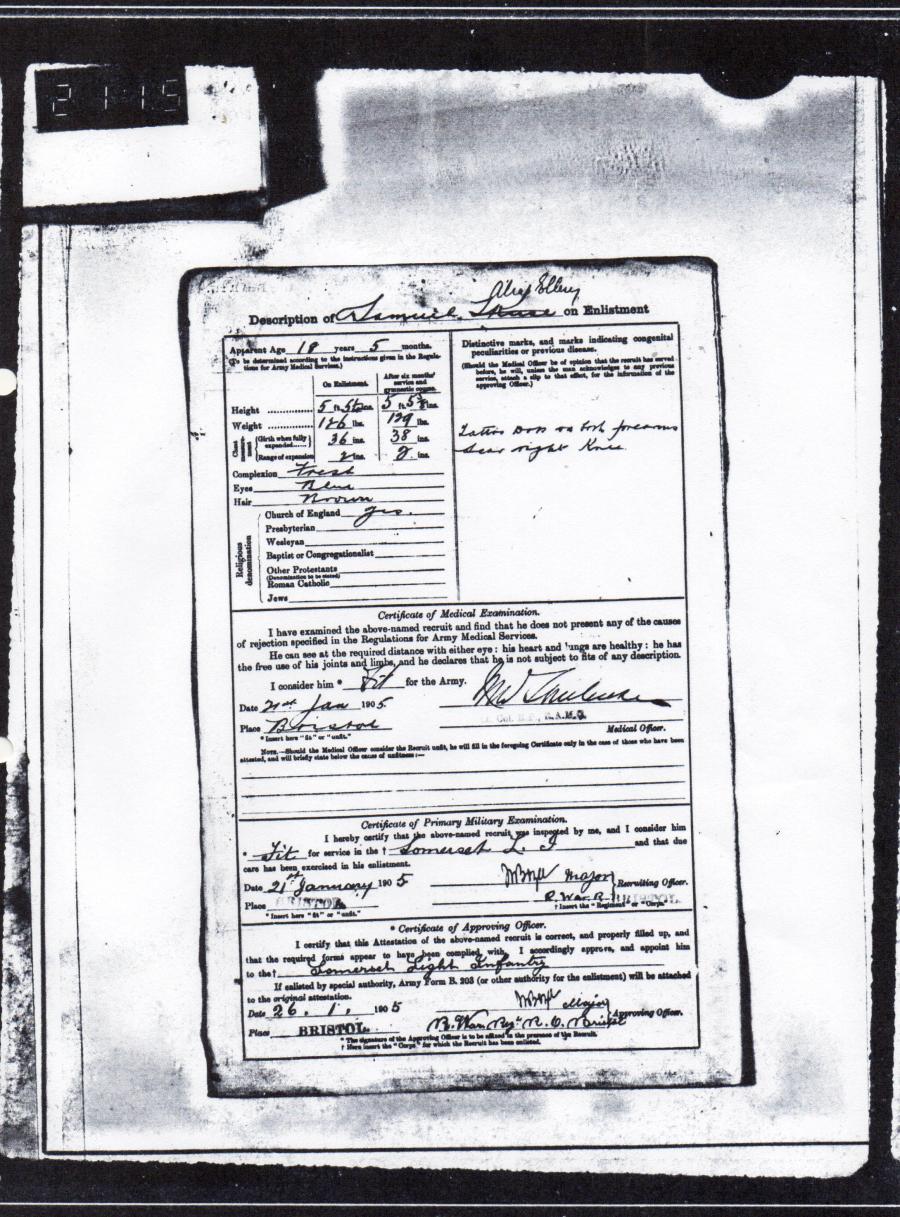 21115
Alias Ellery
Description of Samuel Skuse on Enlistment
Apparent Age 18 years 5 months.
(To be determined according to the instructions given in the Regulations for Army Medical Services.)
On Enlistment. After six months' service and gymnastic course.
Height 5 ft. 5½ ins. 5 ft. 5⅞ ins.
Weight 126 lbs. 129 lbs.
Chest measurement
Girth when fully expanded 36 ins. 38 ins.
Range of expansion 2 ins. 2 ins.
Complexion Fresh
Eyes Blue
Hair Brown
Religious denomination
Church of England Yes.
Presbyterian
Wesleyan
Baptist or Congregationalist
Other Protestants
(Denomination to be stated)
Roman Catholic
Jews
Distinctive marks, and marks indicating congenital
peculiarities or previous disease.
(Should the Medical Officer be of opinion that the recruit has served
before, he will, unless the man acknowledges to any previous
service, attach a slip to that effect, for the information of the
approving Officer.)
Tattoo Dots on both forearms
Scar right Knee
Certificate of Medical Examination.
I have examined the above-named recruit and find that he does not present any of the causes
of rejection specified in the Regulations for Army Medical Services.
He can see at the required distance with either eye: his heart and lungs are healthy: he has
the free use of his joints and limbs, and he declares that he is not subject to fits of any description.
I consider him * Fit for the Army.
Date 21st Jan 1905
R.A.M.C.
Place Bristol
Medical Officer.
* Insert here "fit" or "unfit."
NOTE.—Should the Medical Officer consider the Recruit unfit, he will fill in the foregoing Certificate only in the case of those who have been
attested, and will briefly state below the cause of unfitness:—
Certificate of Primary Military Examination.
I hereby certify that the above-named recruit was inspected by me, and I consider him
* Fit for service in the † Somerset L. I and that due
care has been exercised in his enlistment.
Major
Date 21st January 1905
Recruiting Officer.
Place BRISTOL
R. War. R. BRISTOL.
* Insert here "fit" or "unfit."
† Insert the "Regiment" or "Corps."
* Certificate of Approving Officer.
I certify that this Attestation of the above-named recruit is correct, and properly filled up, and
that the required forms appear to have been complied with. I accordingly approve, and appoint him
to the † Somerset Light Infantry
If enlisted by special authority, Army Form B. 203 (or other authority for the enlistment) will be attached
to the original attestation.
Major
Date 26. 1. 1905
Approving Officer.
Place BRISTOL.
R. War. Regt R. O. Bristol
* The signature of the Approving Officer is to be affixed in the presence of the Recruit.
† Here insert the "Corps" for which the Recruit has been enlisted.